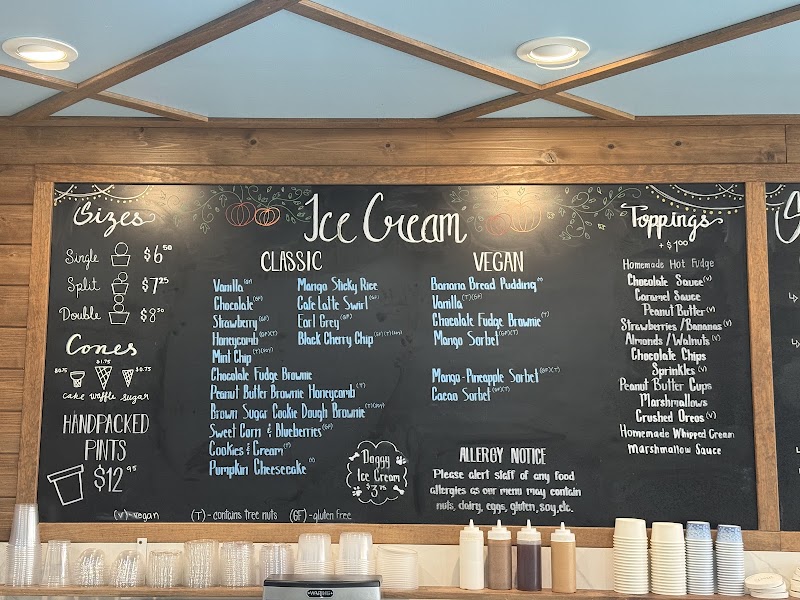 Sizes
Single $6.50
Split $7.25
Double $8.50
Cones
$0.75 $1.75 $0.75
cake waffle sugar
HANDPACKED
PINTS
$12.95
Ice Cream
CLASSIC
Vanilla (GF)
Chocolate (GF)
Strawberry (GF)
Honeycomb (GF)(T)
Mint Chip
Chocolate Fudge Brownie
Peanut Butter Brownie Honeycomb (T)
Brown Sugar Cookie Dough Brownie
Sweet Corn & Blueberries (GF)
Cookies & Cream (T)
Pumpkin Cheesecake
Mango Sticky Rice
Cafe Latte Swirl (GF)
Earl Grey (GF)
Black Cherry Chip
Doggy
Ice Cream
$3.75
VEGAN
Banana Bread Pudding
Vanilla (T)(GF)
Chocolate Fudge Brownie (T)
Mango Sorbet (GF)(T)
Mango-Pineapple Sorbet (GF)(T)
Cacao Sorbet (GF)(T)
ALLERGY NOTICE
Please alert staff of any food
allergies as our menu may contain
nuts, dairy, eggs, gluten, soy, etc.
Toppings
+ $1.00
Homemade Hot Fudge
Chocolate Sauce (V)
Caramel Sauce
Peanut Butter (V)
Strawberries/Bananas (V)
Almonds/Walnuts (V)
Chocolate Chips
Sprinkles (V)
Peanut Butter Cups
Marshmallows
Crushed Oreos (V)
Homemade Whipped Cream
Marshmallow Sauce
(V)-vegan (T)-contains tree nuts (GF)-gluten free
WARING